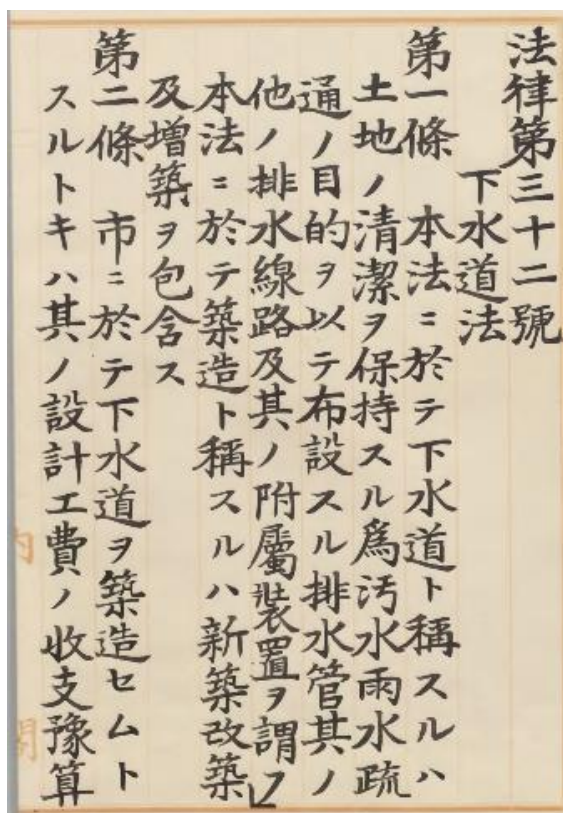 法律第三十二號
下水道法
第一條　本法ニ於テ下水道ト稱スルハ
土地ノ清潔ヲ保持スル爲汚水雨水疏
通ノ目的ヲ以テ布設スル排水管其ノ
他ノ排水線路及其ノ附屬裝置ヲ謂フ
本法ニ於テ築造ト稱スルハ新築改築
及增築ヲ包含ス
第二條　市ニ於テ下水道ヲ築造セムト
スルトキハ其ノ設計工費ノ收支豫算
内閣